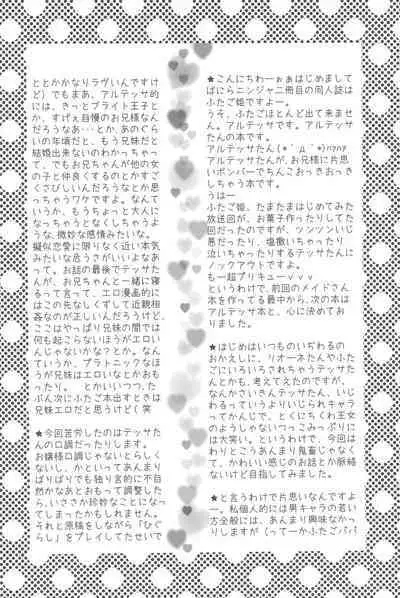 ★こんにちわーぁぁはじめまして
ばにらニンジャ二冊目の同人誌は
ふたご姫ですよー。
うそ、ふたごほとんど出て来ませ
ん。アルテッサです。アルテッサ
たんの本です。
アルテッサたん(*´д｀*)ﾊｧﾊｧ
アルテッサたんが、お兄様に片思
いボンバーでちんこおっきおっき
しちゃう本です。
うはー
ふたご姫、たまたまはじめてみた
放送回が、お菓子作ったりしてた
回だったのですが、ツンツンいじ
悪だったり、塩撒いちゃったり
泣いちゃったりするテッサたんに
ノックアウトですよ。
も一超プリキューｖｖｖ
というわけで、前回のメイドさん
本を作ってる最中から、次の本は
アルテッサ本と、心に決めてお
りました。
★はじめはいつものいぢわるの
おかえしに、リオーネたんやふた
ごにいろいろされちゃうテッサた
んとかも、考えてえたのですが、
なんかさいきんテッサたん、いじ
わるっていうよりいじられキャラ
ってかんじで、とくにちくわ王女
のようしゃないつっこみっぷりに
は大笑い。というわけで、今回は
わりとこうあんまり鬼畜じゃなく
て、かわいい感じのお話とか脈絡
ないけど目指してみました。
★と言うわけで片思いなんですよ
ー。私個人的には男キャラの若い
方全般には、あんまり興味なかっ
りしますが（ってーかふたごパパ
ととかかなりラヴいんですけ
ど）でもまあ、アルテッサ的
には、きっとブライト王子とか、
すぱぇ自慢のお兄様なんだ
ろうなあ…とか、あのぐら
いの年頃だと、もう兄妹だと
結婚出来ないのわかっちゃっ
て、でもお兄ちゃんが他の女
の子と仲良くするのとかすご
くさびしいんだろうなとか思
っちゃうワケですよ。なんて
いうか、もうちょっと大人に
なっちゃうとなくしちゃうよう
な、微妙な感情みたいな。
擬似恋愛に限りなく近い本気
みたいな危うさがいいよなあ
って。お話の最後でテッサた
んが、お兄ちゃんと一緒に寝
るって言って、エロ漫画的に
はこの先なしくずして近親相
姦なのが正しいんだろうけど、
ここはやっぱり兄妹の間では
何も起こらないほうがエロい
んじゃないかな？とか。なん
ていうか、プラトニックなほう
が兄妹はエロいなとかおもっ
たり。　とかいいつつ、たぶ
ん次にふたご本出すときは
兄妹エロだと思うけど（笑
★今回苦労したのはテッサたん
の口調だったりします。
お嬢様口調じゃないとらしくな
いし、かといってあんまり
ばりばりでも独り言的に不自
然かなあとおもって調整した
ら、いささか珍妙なことになっ
てしまったかもしれません。
それと原稿をしながら「ひぐ
らし」をプレイしてたせいで